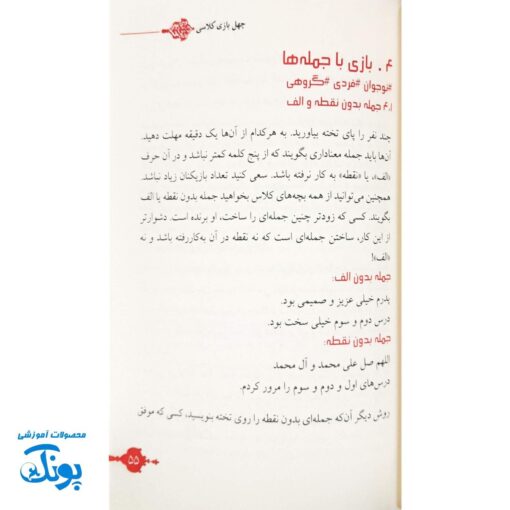 چهل بازی کلاسی
۴. بازی با جمله‌ها
#نوجوان #فردی #گروهی
۴.۱ جمله بدون نقطه و الف
چند نفر را پای تخته بیاورید. به هرکدام از آن‌ها یک دقیقه مهلت دهید.
آن‌ها باید جمله معناداری بگویند که از پنج کلمه کمتر نباشد و در آن حرف
«الف»، یا «نقطه» به کار نرفته باشد. سعی کنید تعداد بازیکنان زیاد نباشد.
همچنین می‌توانید از همه بچه‌های کلاس بخواهید جمله بدون نقطه یا الف
بگویند. کسی که زودتر چنین جمله‌ای را ساخت، او برنده است. دشوارتر
از این کار، ساختن جمله‌ای است که نه نقطه در آن به‌کاررفته باشد و نه
«الف»!
جمله بدون الف:
پدرم خیلی عزیز و صمیمی بود.
درس دوم و سوم خیلی سخت بود.
جمله بدون نقطه:
اللهم صل علی محمد و آل محمد
درس‌های اول و دوم و سوم را مرور کردم.
روش دیگر آن‌که جمله‌ای بدون نقطه را روی تخته بنویسید، کسی که موفق
۵۵
محصولات آموزشی
پونک